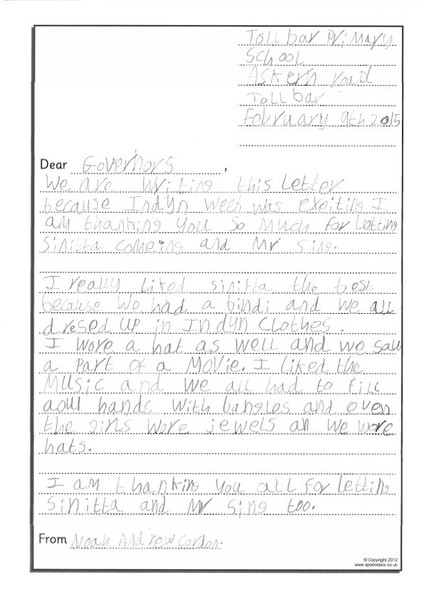 Toll bar Primary
School
Askern road
Toll bar
February 9th 2015
Dear Governors,
We are writing this letter
because Indyn week was exciting I
am thanking you so much for letting
Sinitta comeing and Mr Sing.
I really liked sinitta the best
because we had a bindi and we all
dresed up in Indyn clothes.
I wore a hat as well and we saw
a part of a Movie. I liked the
Music and we all had to fill
aour hands with bangles and even
the girls wore jewels an we wore
hats.
I am thanking you all for letting
Sinitta and Mr Sing too.
From Noah Andrew
© Copyright 2012
www.sparklebox.co.uk